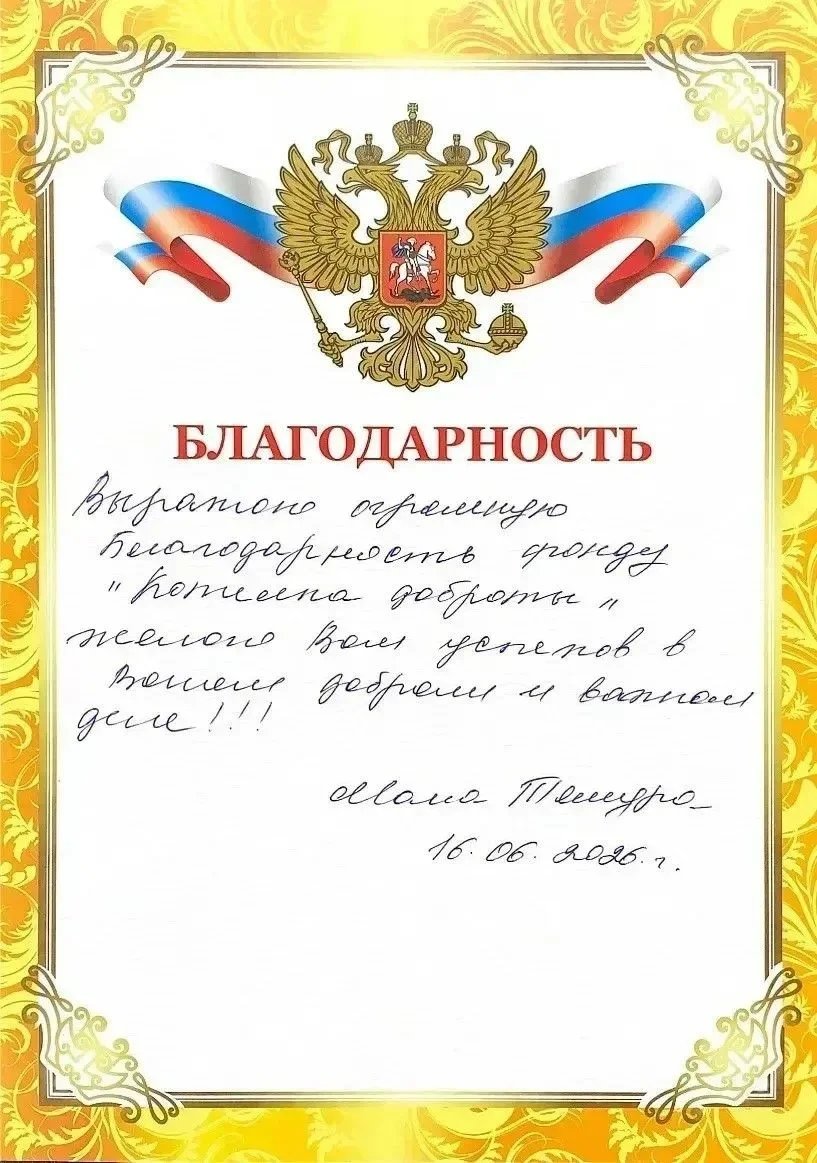 БЛАГОДАРНОСТЬ
Выражаю огромную
благодарность фонду
"Копилка доброты"
желаю Вам успехов в
Вашем добром и важном
деле!!!
Мама Тимура
16.06.2026 г.